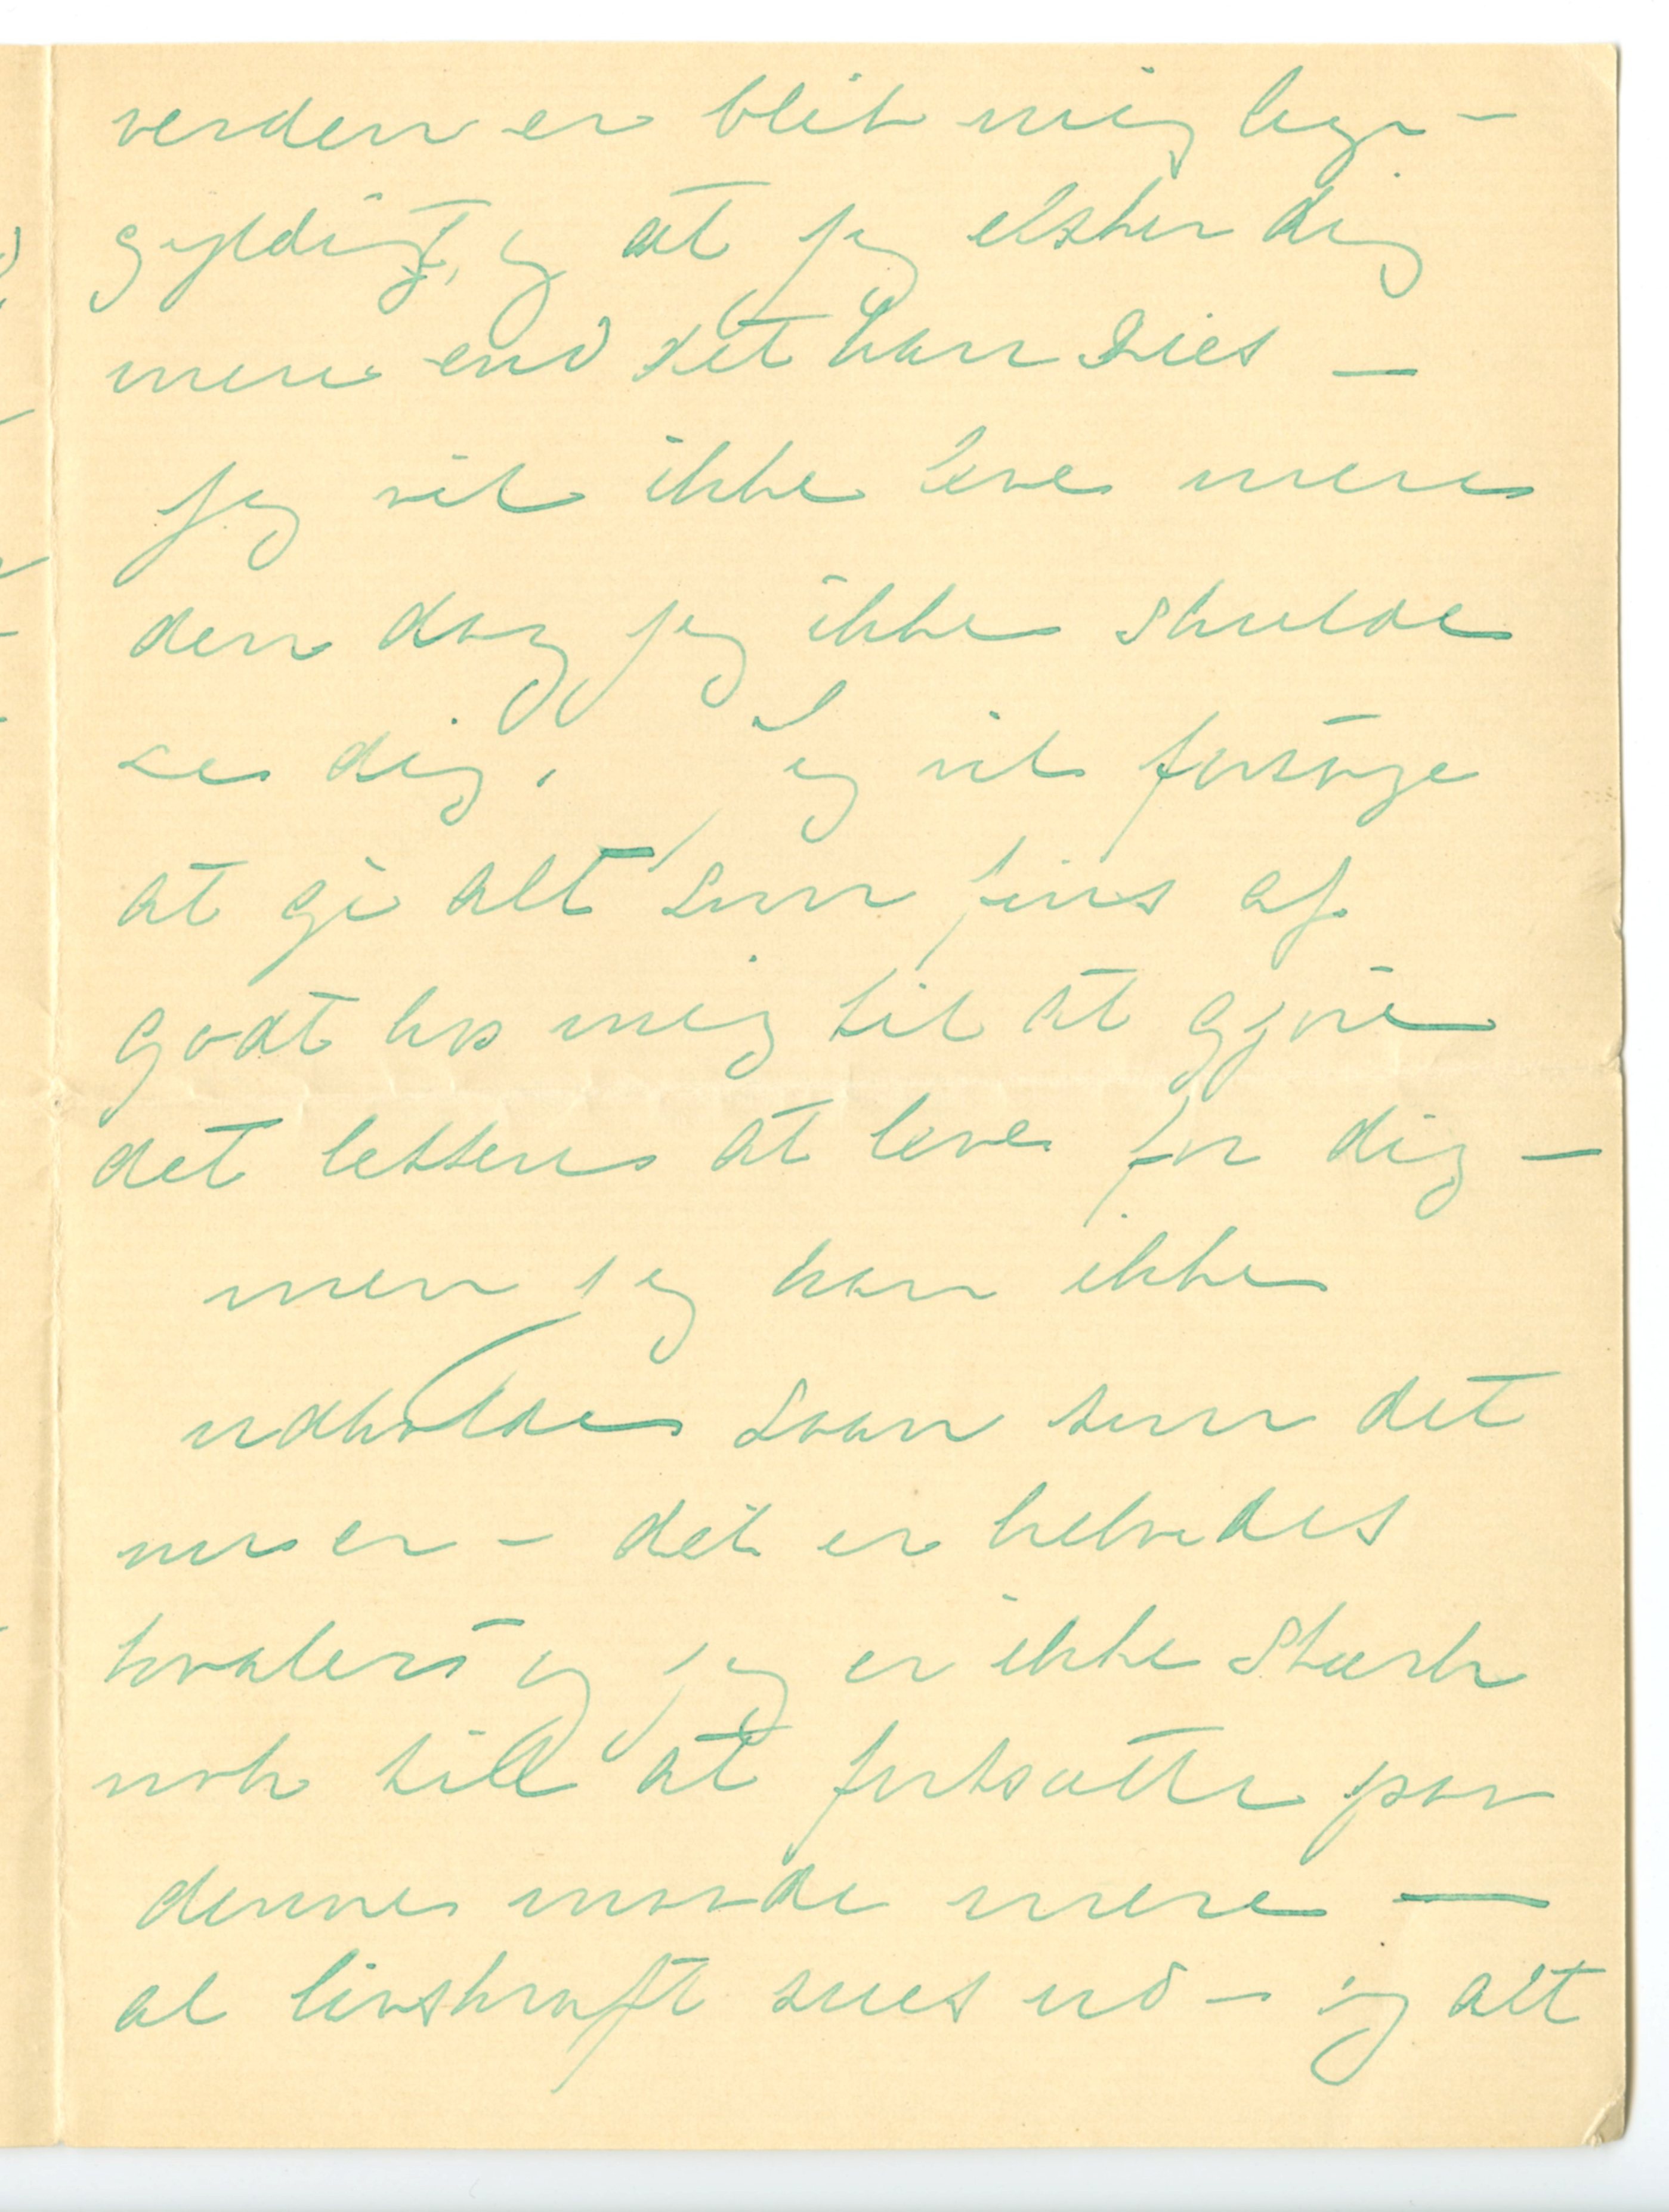 verden er blit mig lige-
gyldigt, og at jeg elsker dig
mere end det kan sies —
jeg vil ikke leve mere
den dag jeg ikke skulde
se dig. Jeg vil forsøge
at gi alt som fins af
godt hos mig til at gjøre
det lettere at leve for dig —
men jeg kan ikke
udholde saan som det
nu er — det er helvedes
kvaler — og jeg er ikke stærk
nok till at fortsætte paa
denne maade mere —
al livskraft sues ud — og alt